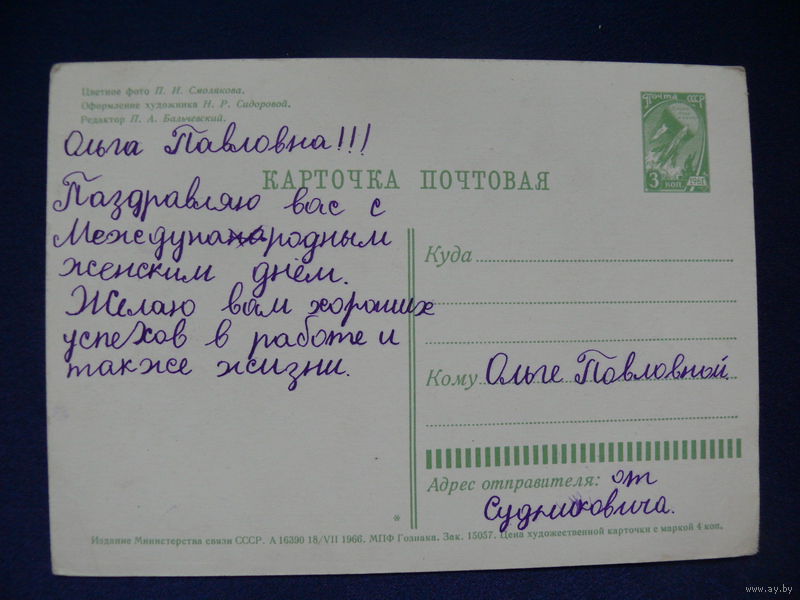 Цветное фото П. И. Смолякова.
Оформление художника Н. Р. Сидоровой.
Редактор П. А. Бальчевский.
ПОЧТА СССР
3 коп.
Ольга Павловна!!!
КАРТОЧКА ПОЧТОВАЯ
Паздравляю вас с
Междунанародным
женским днём.
Желаю вам хороших
успехов в работе и
также жизни.
Куда
Кому Ольге Повловной.
Адрес отправителя: от
Судниковича.
*
Издание Министерства связи СССР. А 16390 18/VII 1966. МПФ Гознака. Зак. 15057. Цена художественной карточки с маркой 4 коп.
www.ay.by